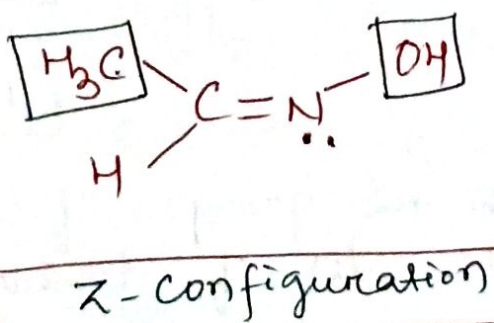 H₃C OH
C=N
H
Z-Configuration